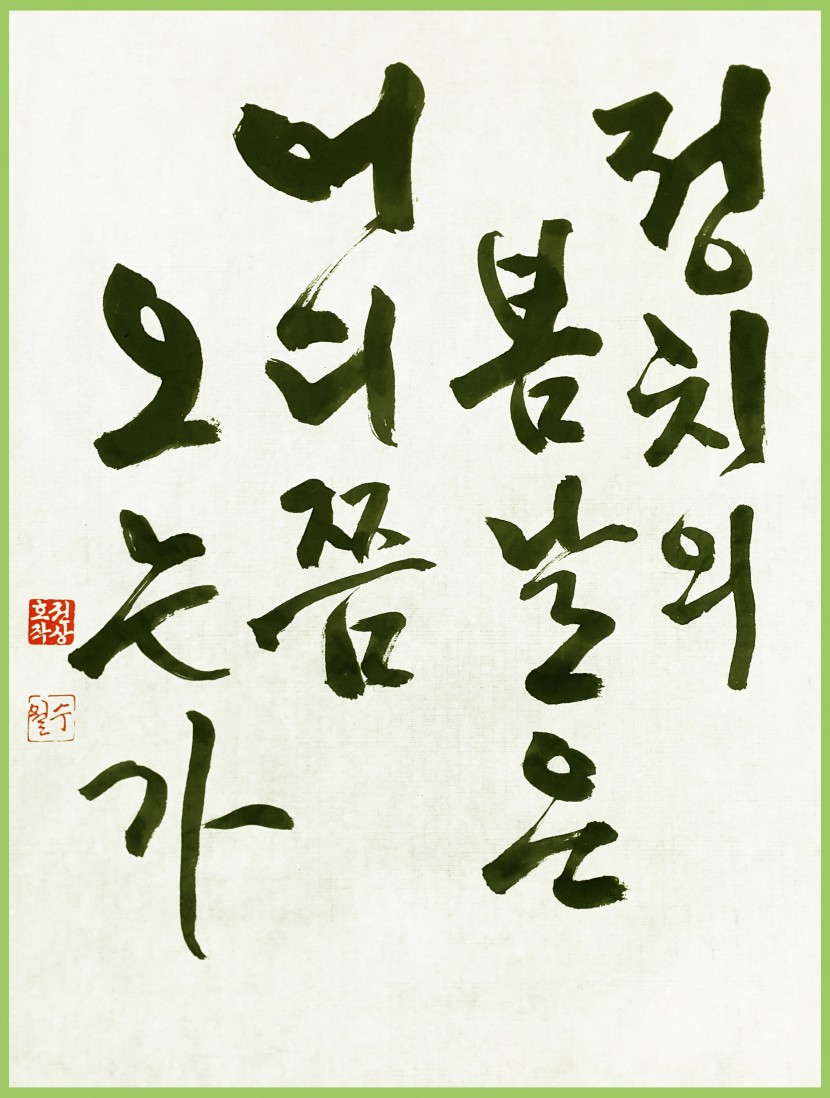 정치의
봄날은
어디쯤
오는가
권상호작
수월